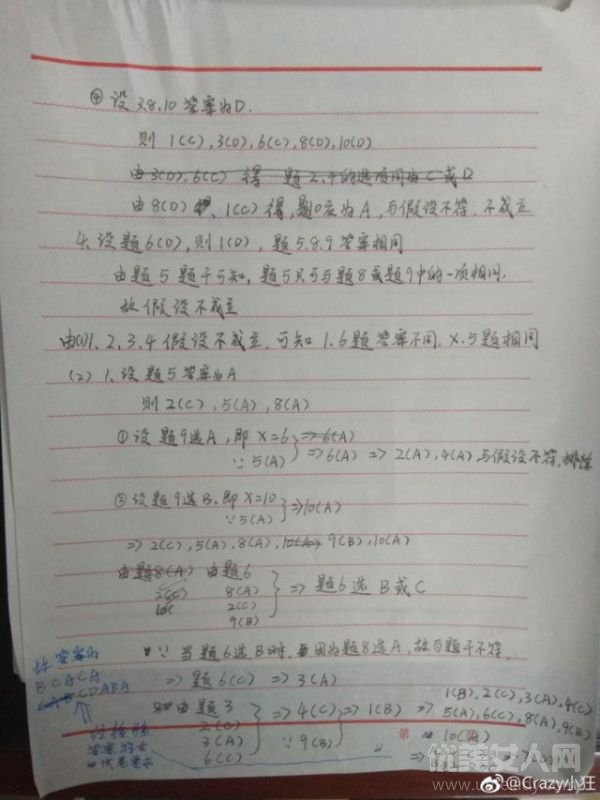 ④ 设 3.8.10 答案为D.
则 1(C), 3(D), 6(C), 8(D), 10(D)
由 3(D), 6(C) 得 题 2.4的选项同为 C 或 D
由 8(D) 1(C) 得, 题10应为 A, 与假设不符, 不成立
4. 设题6(D), 则 1(D), 题5.8.9 答案相同
由题5题干可知, 题5只可与题8或题9中的一项相同,
故假设不成立
由(1)1、2、3、4 假设不成立, 可知 1、6题答案不同, X、5题相同
(2) 1. 设题5答案为A
则 2(C), 5(A), 8(A)
① 设题9选A, 即 X=6 ⇒ 6(A)
∵ 5(A) ⇒ 6(A) ⇒ 2(A), 4(A) 与假设不符, 排除
② 设题9选B, 即 X=10
∵ 5(A) ⇒ 10(A)
⇒ 2(C), 5(A), 8(A), 10(A) 9(B), 10(A)
由题8(A) 由题6
2(C) 8(A)
2(C) ⇒ 题6选 B 或 C
9(B)
∵ 当题6选B时, 因为题8选A, 故与题干不符,
⇒ 题6(C) ⇒ 3(A)
由题3
2(C)
3(A)
6(C)
⇒ 4(C)
∵ 9(B)
⇒ 1(B) ⇒
1(B), 2(C), 3(A), 4(C)
5(A), 6(C), 8(A), 9(B)
10(A)
故答案为
BCACA
CDABA
经检验
答案符合
第
优美女人网
@Crazy小狂